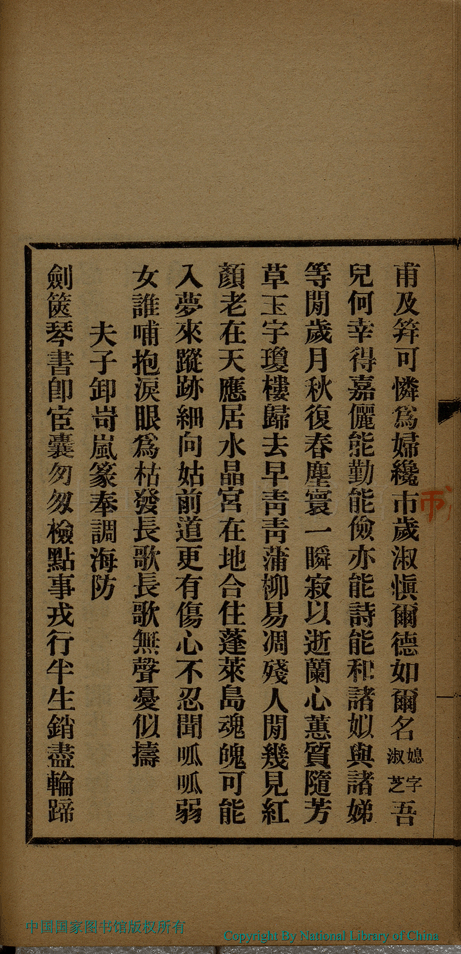 甫及笄可憐爲婦纔市歲淑愼爾德如爾名媳字淑芝吾
帀
兒何幸得嘉儷能勤能儉亦能詩能和諸姒與諸娣
等閒歲月秋復春塵寰一瞬寂以逝蘭心蕙質隨芳
草玉宇瓊樓歸去早靑靑蒲柳易凋殘人閒幾見紅
顏老在天應居水晶宮在地合住蓬萊島魂魄可能
入夢來蹤跡細向姑前道更有傷心不忍聞呱呱弱
女誰哺抱淚眼爲枯發長歌長歌無聲憂似擣
夫子卸岢嵐篆奉調海防
劍篋琴書卽宦囊匆匆檢點事戎行半生銷盡輪蹄
中国国家图书馆版权所有
Copyright By National Library of China